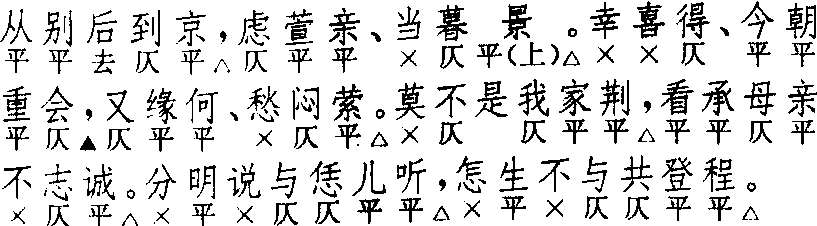 从别后到京，虑萱亲、当暮景。幸喜得、今朝
平平去仄平△仄平平×仄平(上)△××仄平平
重会，又缘何、愁闷萦。莫不是我家荆，看承母亲
平仄▲仄平平×仄平△×仄仄平平△平平仄平
不志诚。分明说与恁儿听，怎生不与共登程。
×仄平△×平×仄仄平平△×平×仄仄平平△